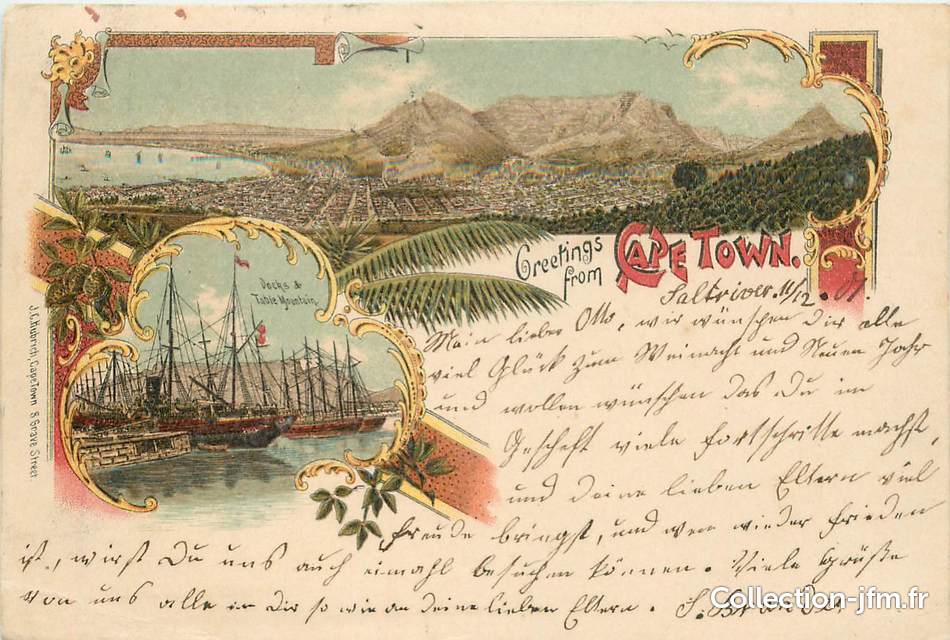 Greetings
from CAPE TOWN.
Docks &
Table Mountain.
J.C. Rubrich, Cape Town 8 Grave Street.
Saltriver. 11/12. 01.
Mein lieber Otto, wir wünschen Dir alle
viel Glück zum Weinacht und Neuen Jahr
und wollen wünschen das Du im
Gescheft viele fortschritte machst,
und deine lieben Eltern viel
freude bringst, und wen wieder frieden
ist, wirst Du uns auch eimahl besuchen können. Viele Grüße
von uns alle an Dir so wie an deine lieben Eltern.
Collection-jfm.fr